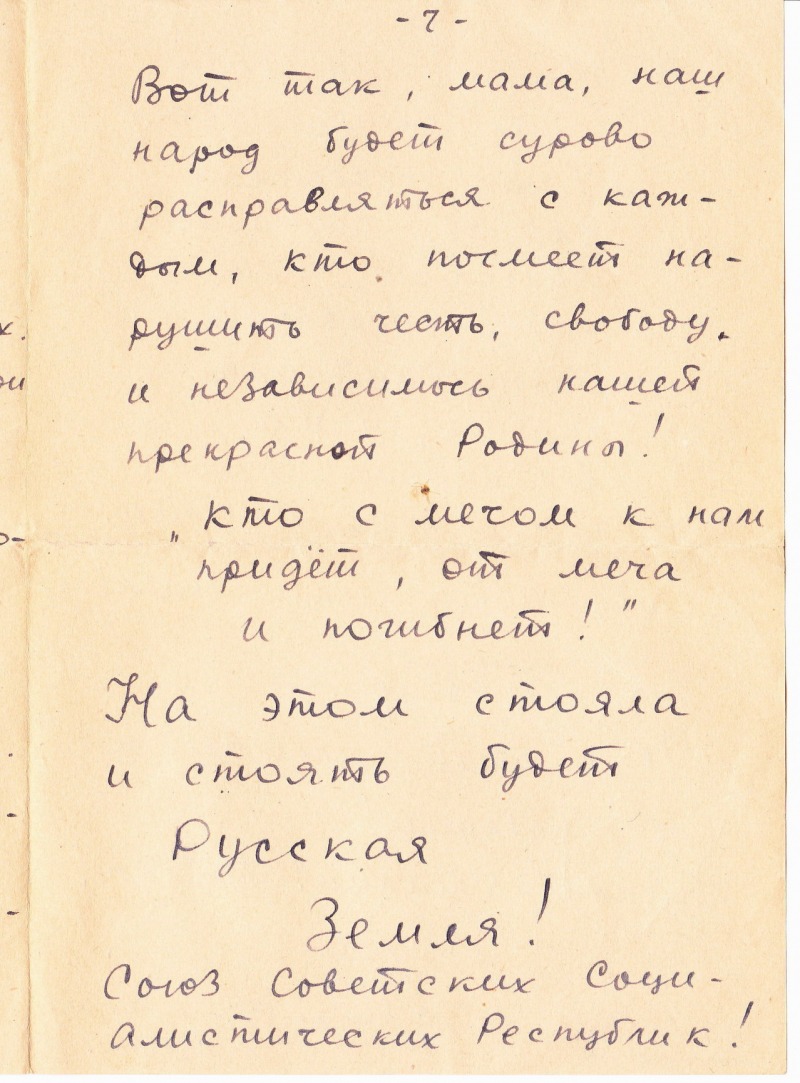 - 7 -
Вот так, мама, наш
народ будет сурово
расправляться с каж-
дым, кто посмеет на-
рушить честь, свободу,
и независимось нашей
прекрасной Родины!
„кто с мечом к нам
придёт, от меча
и погибнет!"
На этом стояла
и стоять будет
Русская
Земля!
Союз Советских Соци-
алистических Республик!